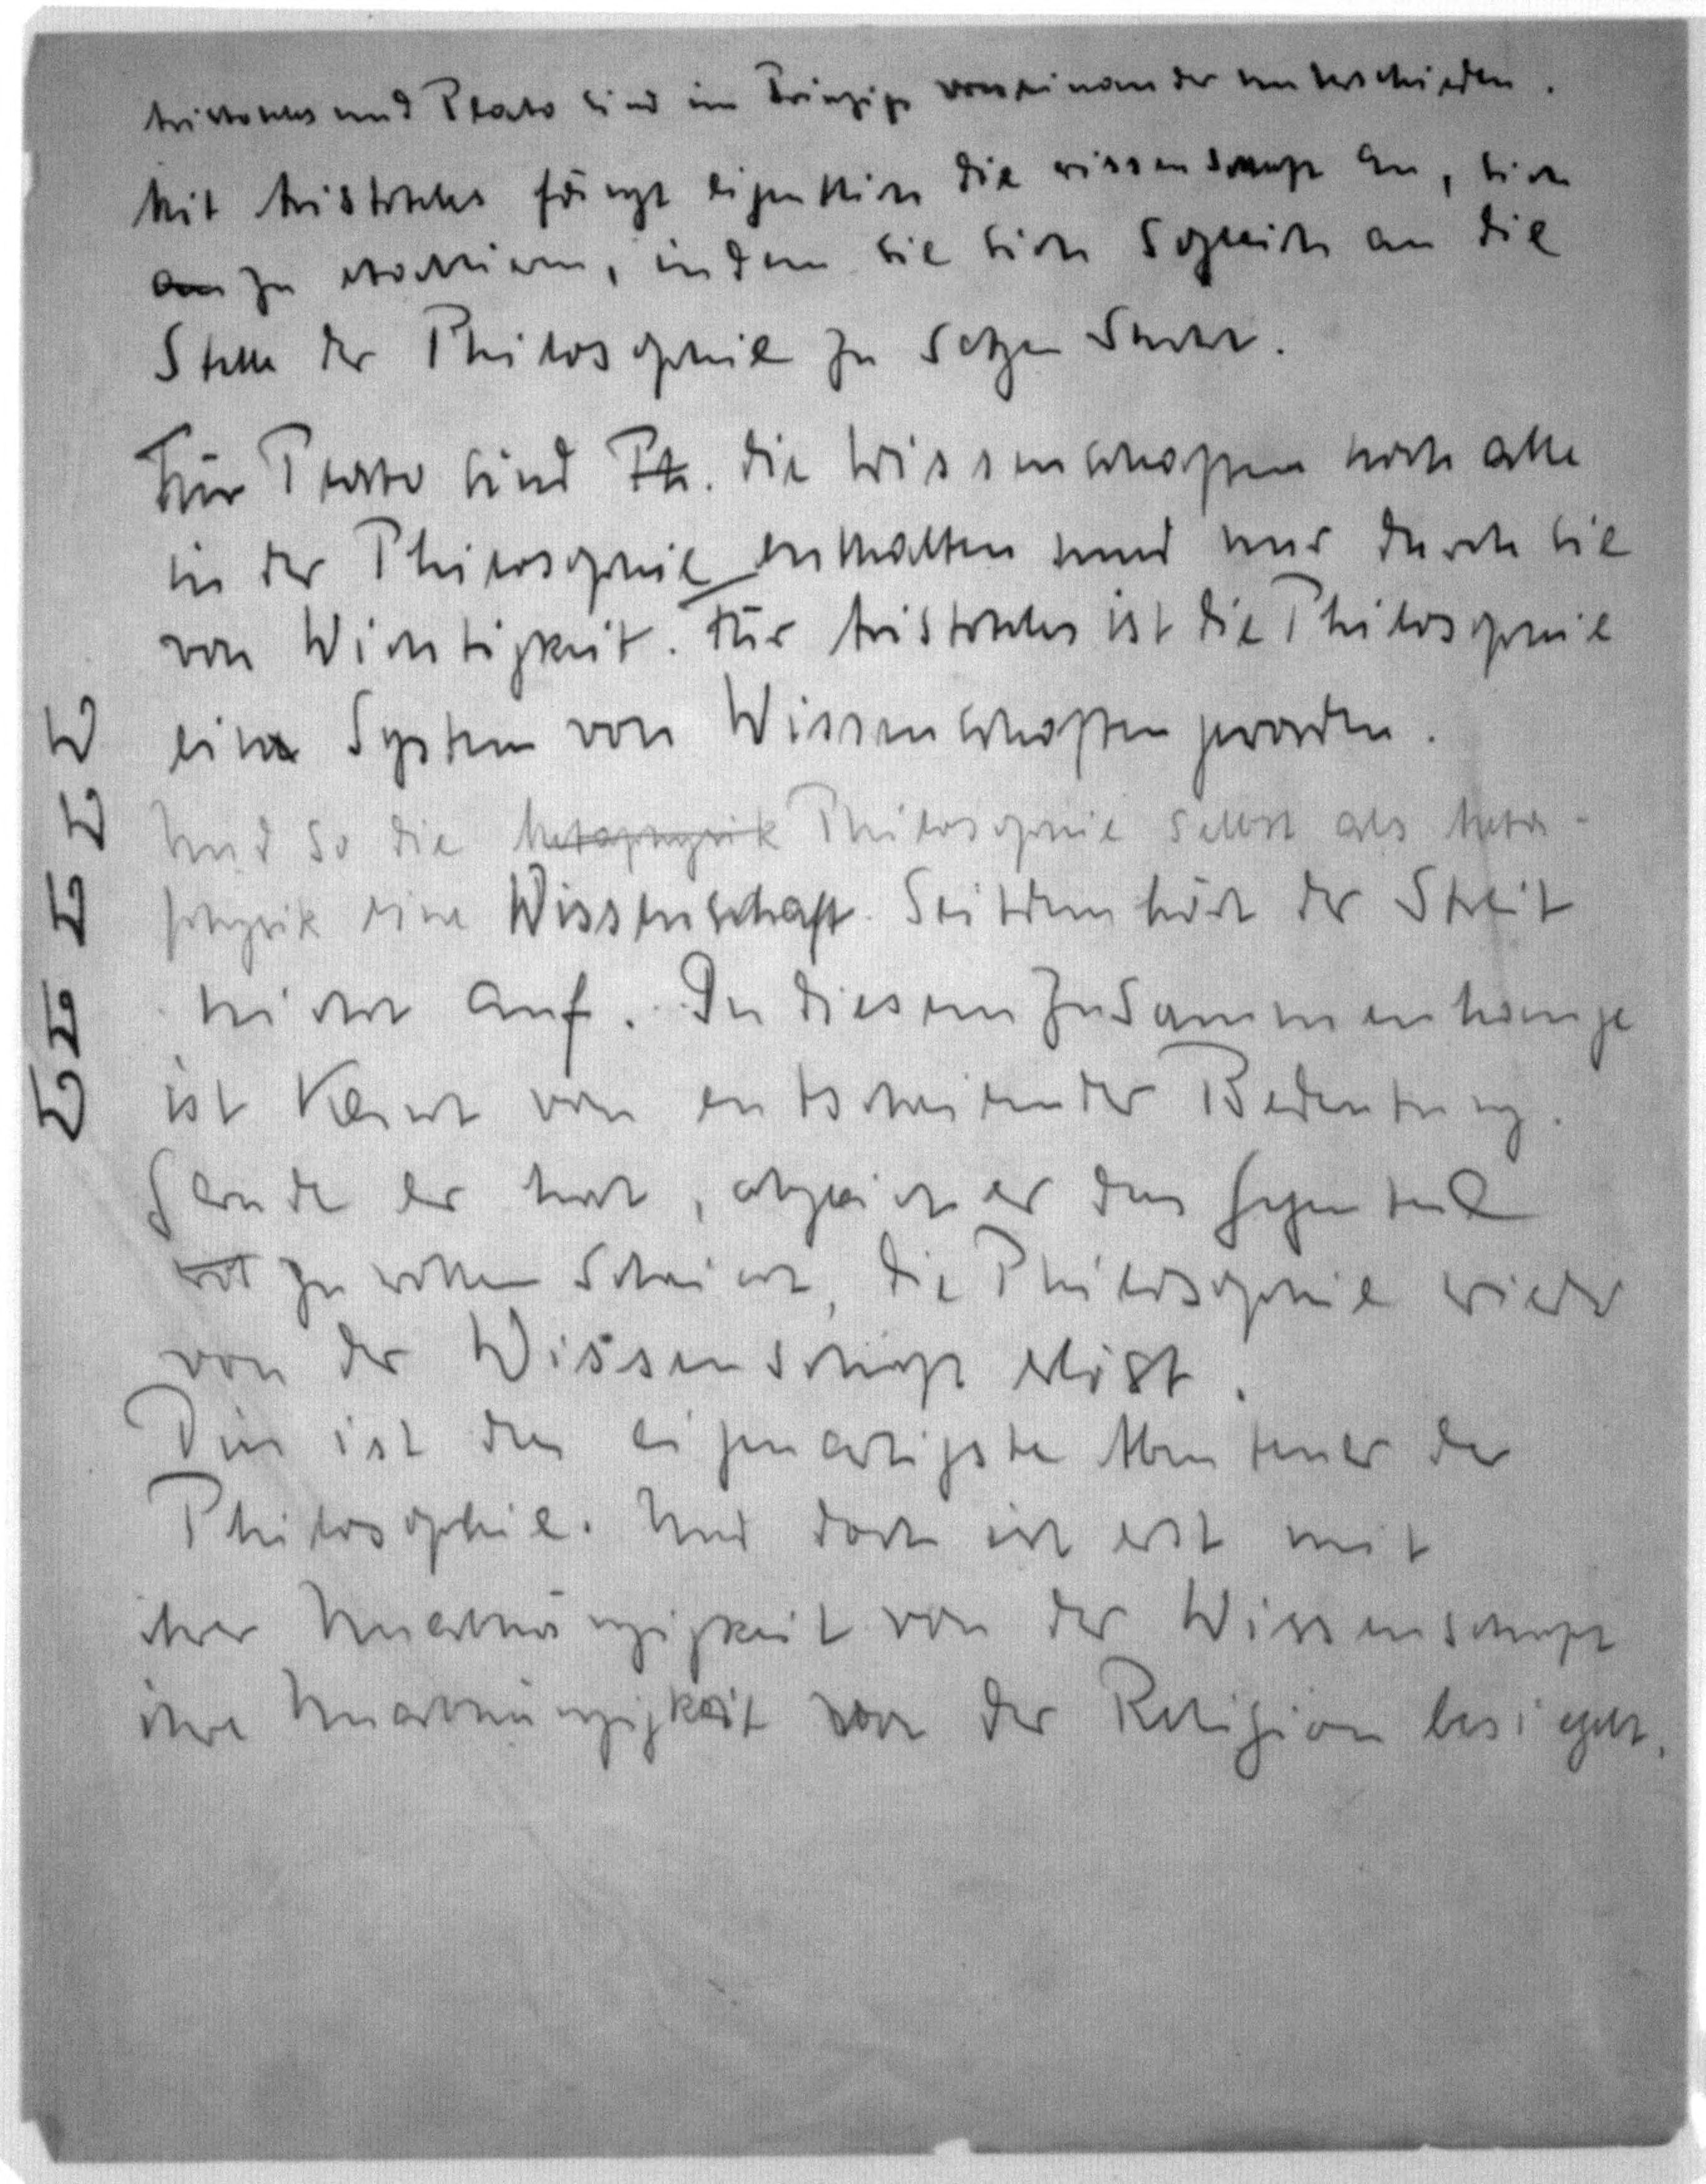 Aristoteles und Plato sind im Prinzip voneinander unterschieden.
Mit Aristoteles fängt eigentlich die Wissenschaft an, sich
an zu etablieren, indem sie sich sogleich an die
Stelle der Philosophie zu setzen sucht.
Für Plato sind Ph. die Wissenschaften noch alle
in der Philosophie enthalten und nur durch sie
von Wichtigkeit. Für Aristoteles ist die Philosophie
ein System von Wissenschaften geworden.
Und so die Metaphysik Philosophie selbst als Meta-
physik eine Wissenschaft. Seitdem hört der Streit
nicht auf. In diesem Zusammenhange
ist Kant von entscheidender Bedeutung.
Gerade er hat, obgleich er das Gegenteil
zu wollen scheint, die Philosophie wieder
von der Wissenschaft erlöst.
Dies ist das eigenartigste Abenteuer der
Philosophie. Und doch ist erst mit
ihrer Unabhängigkeit von der Wissenschaft
ihre Unabhängigkeit von der Religion besiegelt.